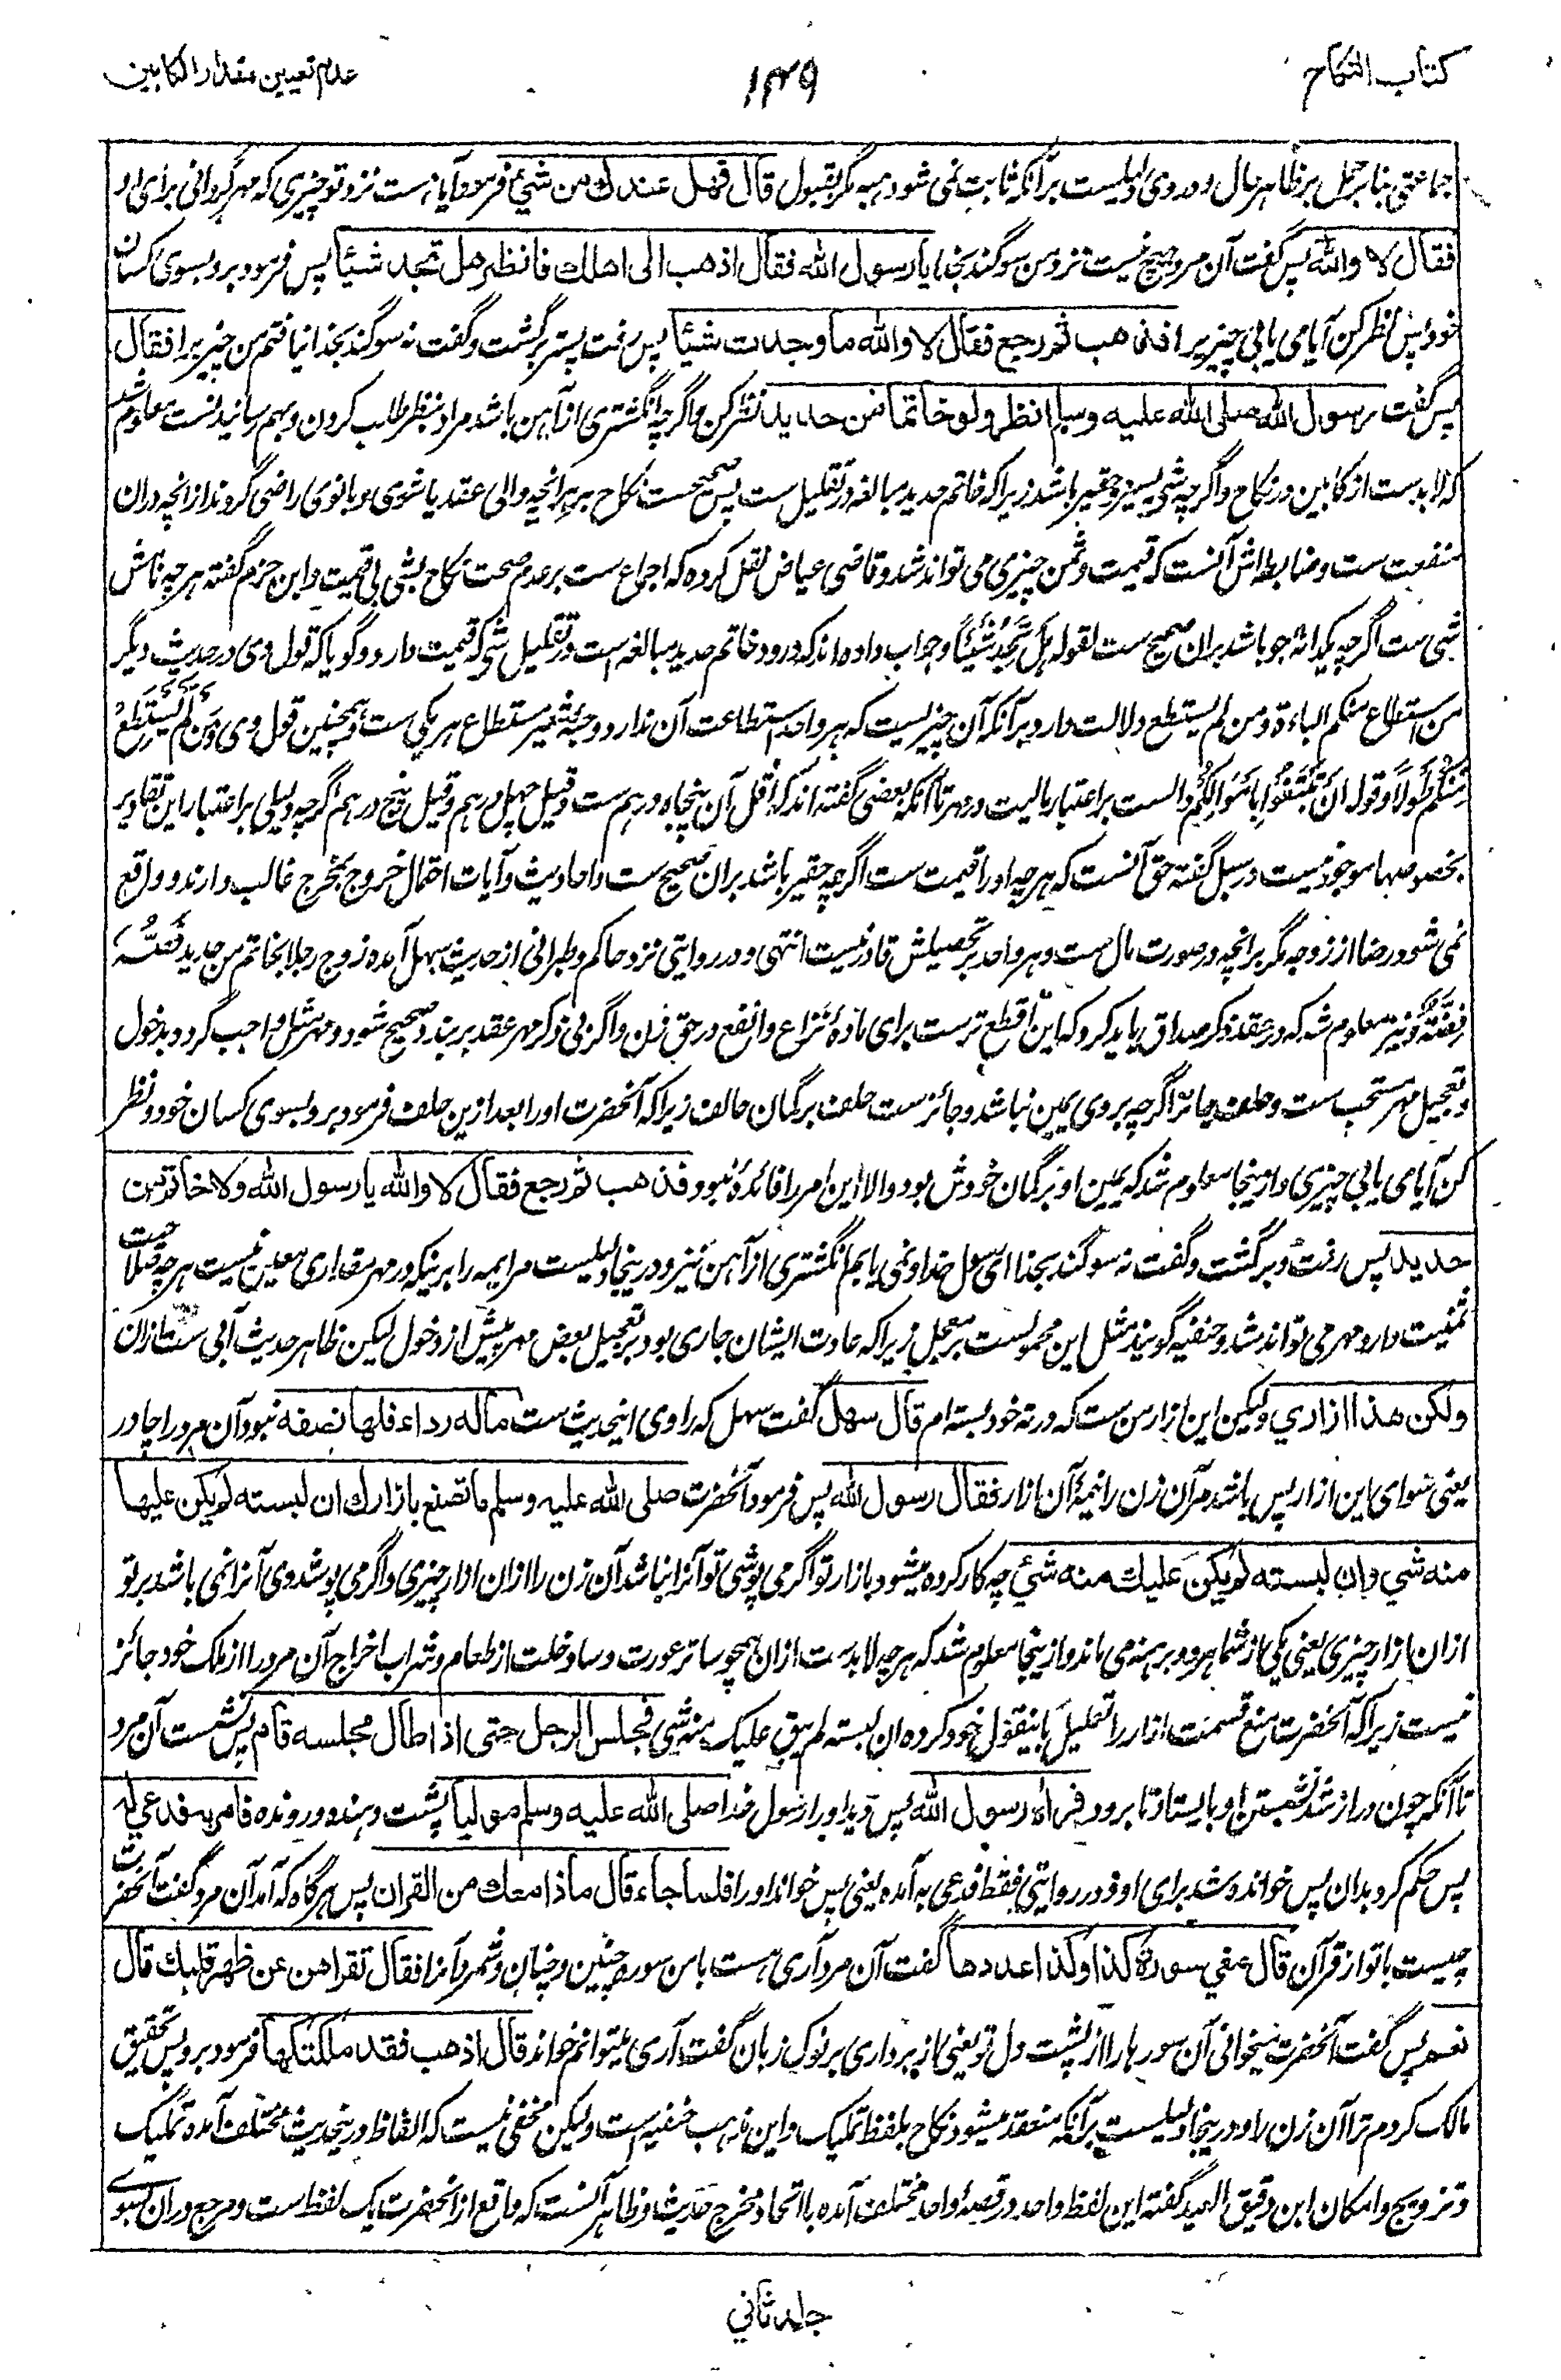 کتاب النکاح
۱۴۹
عدم تعیین مقدار الکابین
جماعتی بنا بر حمل بر ظاهر حال و در وی دلیلست بر آنکه ثابت نمی شود هبه مگر بقبول قال فهل عندك من شیئ فرمود آیا هست نزد تو چیزی که مهر گردانی برای او
فقال لا والله پس گفت آن مرد هیچ نیست نزد من سوگند بخدا یا رسول الله فقال اذهب الی اهلك فانظر هل تجد شیئا پس فرمود برو بسوی کسان
خود پس نظر کن آیا می یابی چیزیرا فذهب ثم رجع فقال لا والله ما وجدت شیئا پس رفت پستر برگشت و گفت نه سوگند بخدا نیافتم من چیزیرا فقال
پس گفت رسول الله صلی الله علیه وسلم انظر ولو خاتما من حدید نظر کن و اگرچه انگشتری از آهن باشد مراد بنظر طلب کردن و بهم رسانیدنست معلوم شد
که لابدست از کابین در نکاح و اگرچه شی یسیر و حقیر باشد زیرا که خاتم حدید مبالغه در تقلیل ست پس صحیحست نکاح بر هر انچه والی عقد یا شوی و بانوی راضی گردند از انچه دران
منفعت ست و ضابطه اش آنست که قیمت و ثمن چیزی می تواند شد و قاضی عیاض نقل کرده که اجماع ست بر عدم صحت نکاح بشی بی قیمت و ابن حزم گفته هر چه نامش
شی ست اگرچه یکدانه جو باشد بران صحیح ست لقوله هل تجد شیئا و جواب داده اند که ورود خاتم حدید مبالغه است در تقلیل شی که قیمت دارد و گویا که قول وی در حدیث دیگر
من استطاع منکم الباءة ومن لم یستطع دلالت دارد بر آنکه آن چیزیست که هر واحد استطاعت آن ندارد و حبهٔ شعیر مستطاع هر یکی ست و همچنین قول وی وَمَن لَّم یَستَطِع
مِنکُم طَولاً و قوله اَن تَبتَغُوا بِاَموَالِکُم دالست بر اعتبار مالیت در مهر تا آنکه بعضی گفته اند که اقل آن پنجاه درهم ست و قیل چهل درهم و قیل پنج درهم اگرچه دلیلی بر اعتبار این تقادیر
بخصوصها موجود نیست در سبل گفته حق آنست که هر چه او را قیمت ست اگرچه حقیر باشد بران صحیح ست و احادیث و آیات احتمال خروج بمخرج غالب دارند و واقع
نمی شود رضا از زوجه مگر بر انچه در صورت مال ست و هر واحد بر تحصیلش قادر نیست انتهی و در روایتی نزد حاکم و طبرانی از حدیث سهل آمده زوج رجلا بخاتم من حدید فصّه
فضّة و نیز معلوم شد که در عقد ذکر صداق باید کرد که این اقطع ترست برای مادهٔ نزاع و انفع در حق زن و اگر بی ذکر مهر عقد بر بندد صحیح شود و مهر مثل واجب گردد بدخول
و تعجیل مهر مستحب ست و حلف جائز اگرچه بر وی یمین نباشد و جائزست حلف بر گمان حالف زیرا که آنحضرت او را بعد ازین حلف فرمود برو بسوی کسان خود و نظر
کن آیا می یابی چیزی و ازینجا معلوم شد که یمین او بر گمان خودش بود و الا این امر را فائدهٔ نبود فذهب ثم رجع فقال لا والله یا رسول الله ولا خاتم من
حدید پس رفت و برگشت و گفت نه سوگند بخدا ای رسول خدا و نمی یابم انگشتری از آهن نیز و درینجا دلیلست مر ایمه را برینکه در مهر مقداری معین نیست هر چه صلاحیت
ثمنیت دارد مهر می تواند شد و حنفیه گویند مثل این محمولست بر معجل زیرا که عادت ایشان جاری بود بر تعجیل بعض مهر پیش از دخول لیکن ظاهر حدیث آبی ست ازان
ولکن هذا ازاری ولیکن این ازار من ست که در ته خود بسته ام قال سهل گفت سهل که راوی این حدیث ست ماله رداء فلها نصفه نبود آن مرد را چادر
یعنی سوای این ازار پس باشد مر آن زن را نیمهٔ آن ازار فقال رسول الله پس فرمود آنحضرت صلی الله علیه وسلم ما تصنع بازارك ان لبسته لم یکن علیها
منه شی وان لبسته لم یکن علیك منه شیئ چه کار کرده میشود بازار تو اگر می پوشی تو آنرا نباشد آن زن را ازان ازار چیزی و اگر می پوشد وی آنرا نمی باشد بر تو
ازان ازار چیزی یعنی یکی از شما هر دو برهنه می ماند و ازینجا معلوم شد که هر چه لابدست ازان همچو ساتر عورت و سد خلت از طعام و شراب اخراج آن مرد را از ملک خود جائز
نیست زیرا که آنحضرت منع قسمت ازار را تعلیل باینقول خود کرده ان لبسته لم یبق علیک منه شی فجلس الرجل حتی اذا طال مجلسه قام پس نشست آن مرد
تا آنکه چون دراز شد نشستن او بایستاد تا برود فراه رسول الله پس دید او را رسول خدا صلی الله علیه وسلم مولیا پشت دهنده و رونده فامر به فدعی له
پس حکم کرد بدان پس خوانده شد برای او و در روایتی فقط فدعی به آمده یعنی پس خواند او را فلما جاء قال ماذا معك من القرآن پس هرگاه که آمد آن مرد گفت آنحضرت
چیست با تو از قرآن قال معی سورة کذا وکذا عددها گفت آن مرد آری هست با من سوره چنین و چنان و شمرد آنرا فقال تقراهن عن ظهر قلبك قال
نعم پس گفت آنحضرت میخوانی آن سورها را از پشت دل تو یعنی از بر داری بر نوک زبان گفت آری میتوانم خواند قال اذهب فقد ملکتکها فرمود برو پس تحقیق
مالک کردم ترا آن زن را و درینجا دلیلست بر آنکه منعقد میشود نکاح بلفظ تملیک و این مذهب حنفیه است ولیکن مخفی نیست که الفاظ درین حدیث مختلف آمده تملیک
و تزویج و امکان ابن دقیق العید گفته این لفظ واحد در قصهٔ واحد مختلف آمده با اتحاد مخرج حدیث و ظاهر آنست که واقع از آنحضرت یک لفظ ست و مرجع دران بسوی
جلد ثانی